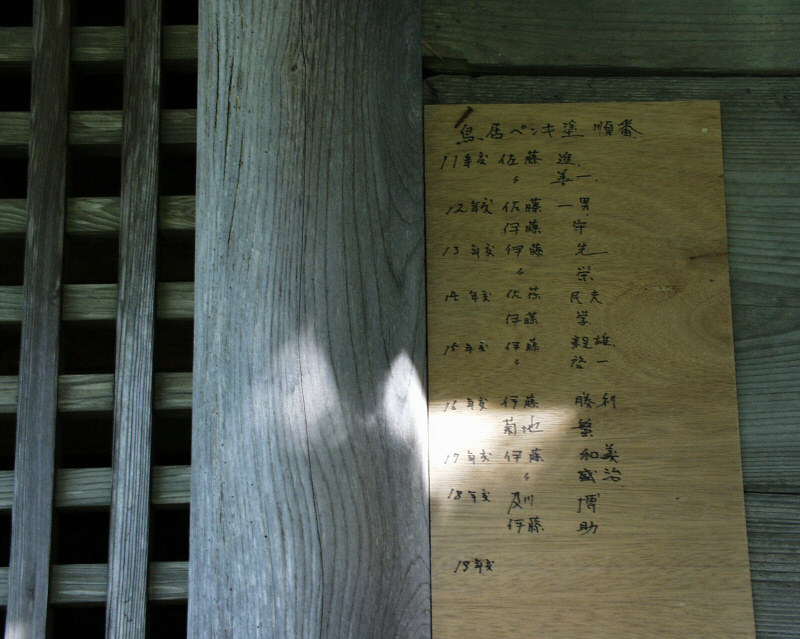 鳥居ペンキ塗 順番
11年度 佐藤 進
〃 善一
12年度 佐藤 一男
伊藤 守
13年度 伊藤 先
〃 栄
14年度 佐藤 民夫
伊藤 学
15年度 伊藤 親雄
〃 啓一
16年度 伊藤 勝利
菊地 繁
17年度 伊藤 和美
〃 盛治
18年度 及川 博
伊藤 助
19年度